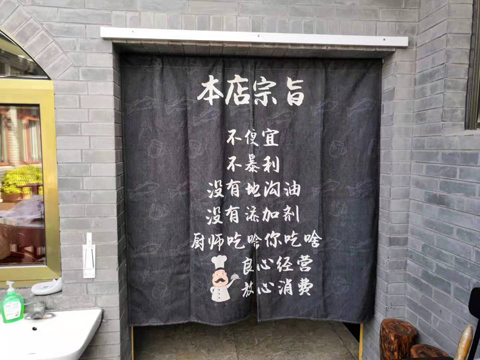 本店宗旨
不便宜
不暴利
没有地沟油
没有添加剂
厨师吃啥你吃啥
良心经营
放心消费